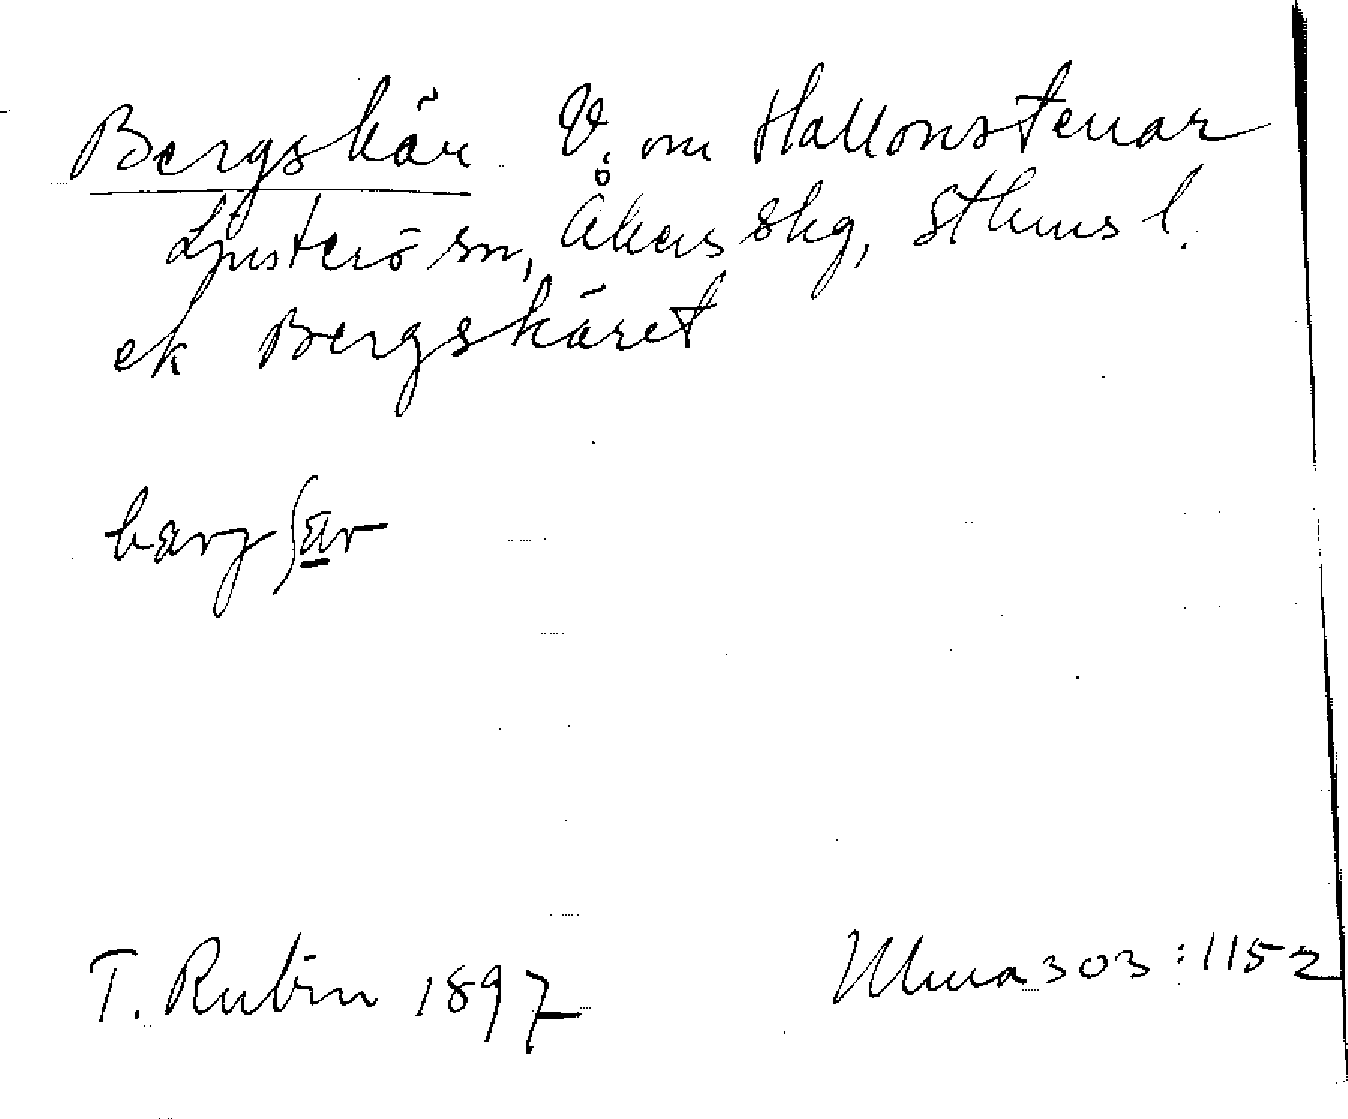 Bergskär V. om Hallonstenar
Ljusterö sn, Åkers skg, Sthms l.
ek Bergskäret
bærgʃær
T. Rubin 1897 Ulma 303:1152